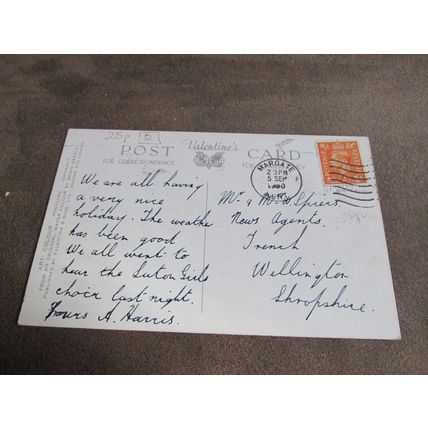 25p 5
POST
Valentine's
CARD
FOR CORRESPONDENCE
MARGATE
2 PM
5 SEP
1950
KENT
We are all having
a very nice
holiday. The weather
has been good
We all went to
hear the Luton Girls
choir last night.
Yours A. Harris.
Mr. & Mrs. Shiers.
News Agents.
Trench
Wellington
Shropshire.